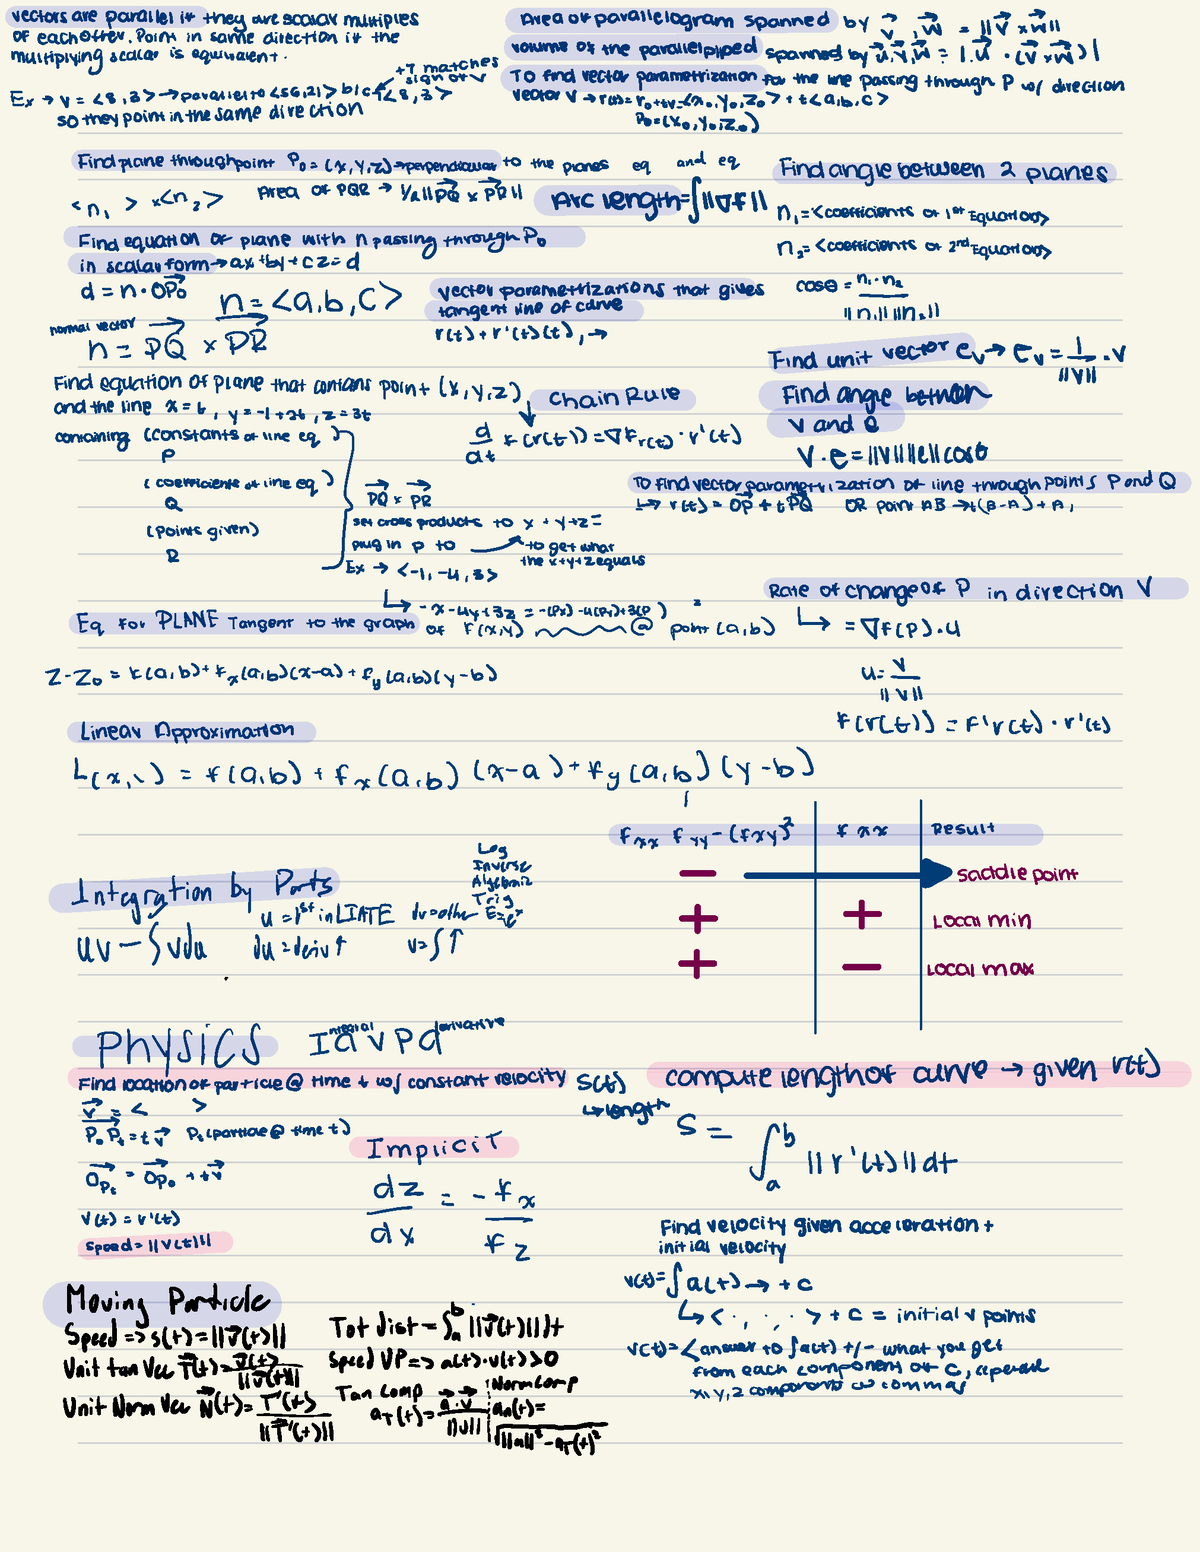 vectors are parallel if they are scalar multiples
of each other. Point in same direction if the
multiplying scalar is equivalent.
+7 matches
sign of v
Ex → v = <8,3> → parallel to <56,21> b/c 7<8,3>
so they point in the same direction
Area of parallelogram spanned by v, w = ||v × w||
volume of the parallelpiped spanned by u, v, w = |u · (v × w)|
To find vector parametrization for the line passing through P w/ direction
vector v → r(t) = r₀ + tv = <x₀, y₀, z₀> + t<a,b,c>
P₀ = (x₀, y₀, z₀)
Find plane through point P₀ = (x,y,z) → perpendicular to the planes eq and eq
<n₁> × <n₂>
Area of PQR → 1/2 ||PQ × PR||
Arc length = ∫||∇f||
Find angle between 2 planes
n₁ = <coefficients of 1st Equation>
n₂ = <coefficients of 2nd Equation>
cosθ = n₁ · n₂ / ||n₁|| ||n₂||
Find equation of plane with n passing through P₀
in scalar form → ax + by + cz = d
d = n · OP₀
n = <a,b,c>
normal vector →
n = PQ × PR
vector parametrizations that gives
tangent line of curve
r(t) + r'(t)(t), →
Find unit vector eᵥ → eᵥ = 1/||v|| · v
Find angle between
v and e
v · e = ||v|| ||e|| cosθ
Find equation of plane that contians point (x,y,z)
and the line x = t, y = -1+2t, z = 3t
containing (constants of line eq)
P
(coefficients of line eq)
Q
(points given)
R
PQ × PR
set cross products to x + y + z =
plug in p to → to get what
the x+y+z equals
Ex → <-1, -4, 3>
↳ -x - 4y + 3z = -(Px) - 4(Py) + 3(P )
Chain Rule
d/dt f(r(t)) = ∇f r(t) · r'(t)
To find vector parametrization of line through points P and Q
↳ r(t) = OP + tPQ OR point AB → t(B-A) + A,
Rate of change of P in direction V
↳ = ∇f(P) · u
u = v / ||v||
f(r(t)) = F'r(t) · r'(t)
Eq for PLANE Tangent to the graph of f(x,y) @ point (a,b)
z - z₀ = f(a,b) + fx(a,b)(x-a) + fy(a,b)(y-b)
Linear Approximation
L(x,y) = f(a,b) + fx(a,b)(x-a) + fy(a,b)(y-b)
fxx fyy - (fxy)² fxx Result
− → saddle point
+ + Local min
+ − Local max
Integration by Parts
uv - ∫vdu
u = 1st in LIATE dv = other
du = deriv ↑ v = ∫↑
Log
Inverse
Algebraic
Trig
E = eˣ
PHYSICS Integral a v P derivative
Find location of particle @ time t w/ constant velocity
v = < >
P₀Pₜ = tv Pₜ (particle @ time t)
OPₜ = OP₀ + tv
v(t) = r'(t)
speed = ||v(t)||
Implicit
dz/dx = - fx/fz
S(t)
↳ length
compute length of curve → given r(t)
S = ∫ₐᵇ ||r'(t)|| dt
Find velocity given acceleration +
initial velocity
v(t) = ∫a(t) → + c
↳ < . , . , . > + c = initial v points
v(t) = <answer to ∫a(t) +/- what you get
from each component of c, seperate
x,y,z components w commas
Moving Particle
Speed => s(t) = ||v(t)||
Unit tan Vec T(t) = v(t) / ||v(t)||
Unit Norm Vec N(t) = T'(t) / ||T'(t)||
Tot dist = ∫ₐᵇ ||v(t)|| dt
speed UP => a(t) · v(t) > 0
Tan Comp
a_T(t) = a · v / ||v||
Norm Comp
aₙ(t) =
√||a||² - a_T(t)²